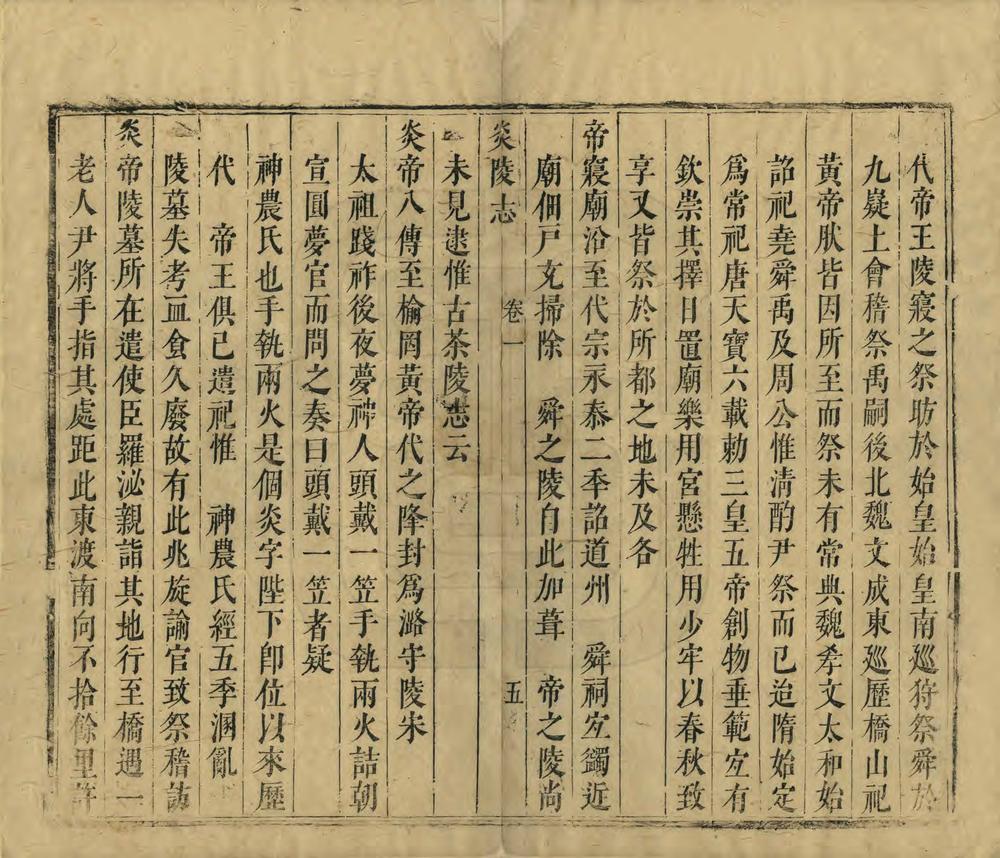 代帝王陵寢之祭昉於始皇始皇南廵狩祭舜於
九嶷上會稽祭禹嗣後北魏文成東廵歷橋山祀
黄帝肰皆因所至而祭未有常典魏孝文太和始
詔祀堯舜禹及周公惟淸酌尹祭而已迨隋始定
爲常祀唐天寶六載勅三皇五帝創物垂範宜有
欽崇其擇日置廟樂用宮懸牲用少牢以春秋致
享又皆祭於所都之地未及各
帝寢廟沿至代宗永泰二年詔道州　舜祠宜蠲近
廟佃戸充掃除　舜之陵自此加葺　帝之陵尚
炎陵志　卷一　五
未見逮惟古茶陵志云
炎帝八傳至榆罔黄帝代之降封爲潞守陵宋
太祖踐祚後夜夢神人頭戴一笠手執兩火詰朝
宣圓夢官而問之奏曰頭戴一笠者疑
神農氏也手執兩火是個炎字陛下卽位以來歷
代　帝王俱已遣祀惟　神農氏經五季溷亂
陵墓失考血食久廢故有此兆旋諭官致祭稽訪
炎帝陵墓所在遣使臣羅泌親詣其地行至橋遇一
老人尹將手指其處距此東渡南向不拾餘里許